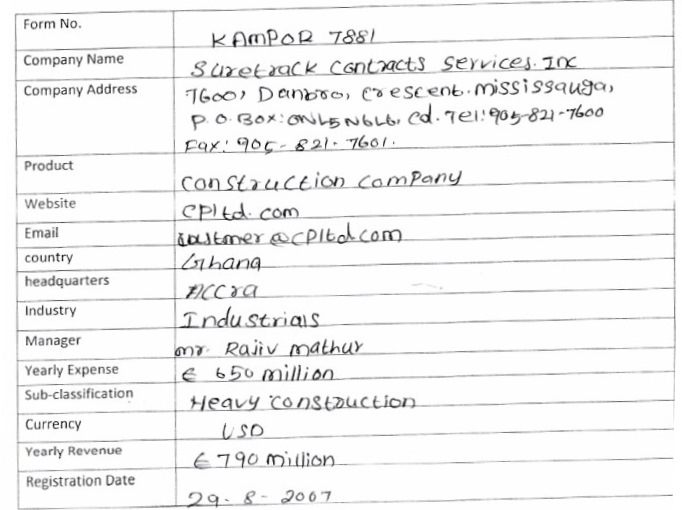 Form No. KAMPOR 7881
Company Name Suretrack Contracts Services. Inc
Company Address 7600, Danbro, Crescent. Mississauga,
P.O. Box: ONL5N6L6, Cd. Tel: 905-821-7600
Fax: 905-821-7601.
Product Construction Company
Website CPltd.com
Email customer@CPltd.com
country Ghana
headquarters Accra
Industry Industrials
Manager mr. Rajiv mathur
Yearly Expense € 650 million
Sub-classification Heavy construction
Currency USD
Yearly Revenue € 790 million
Registration Date 29-8-2007